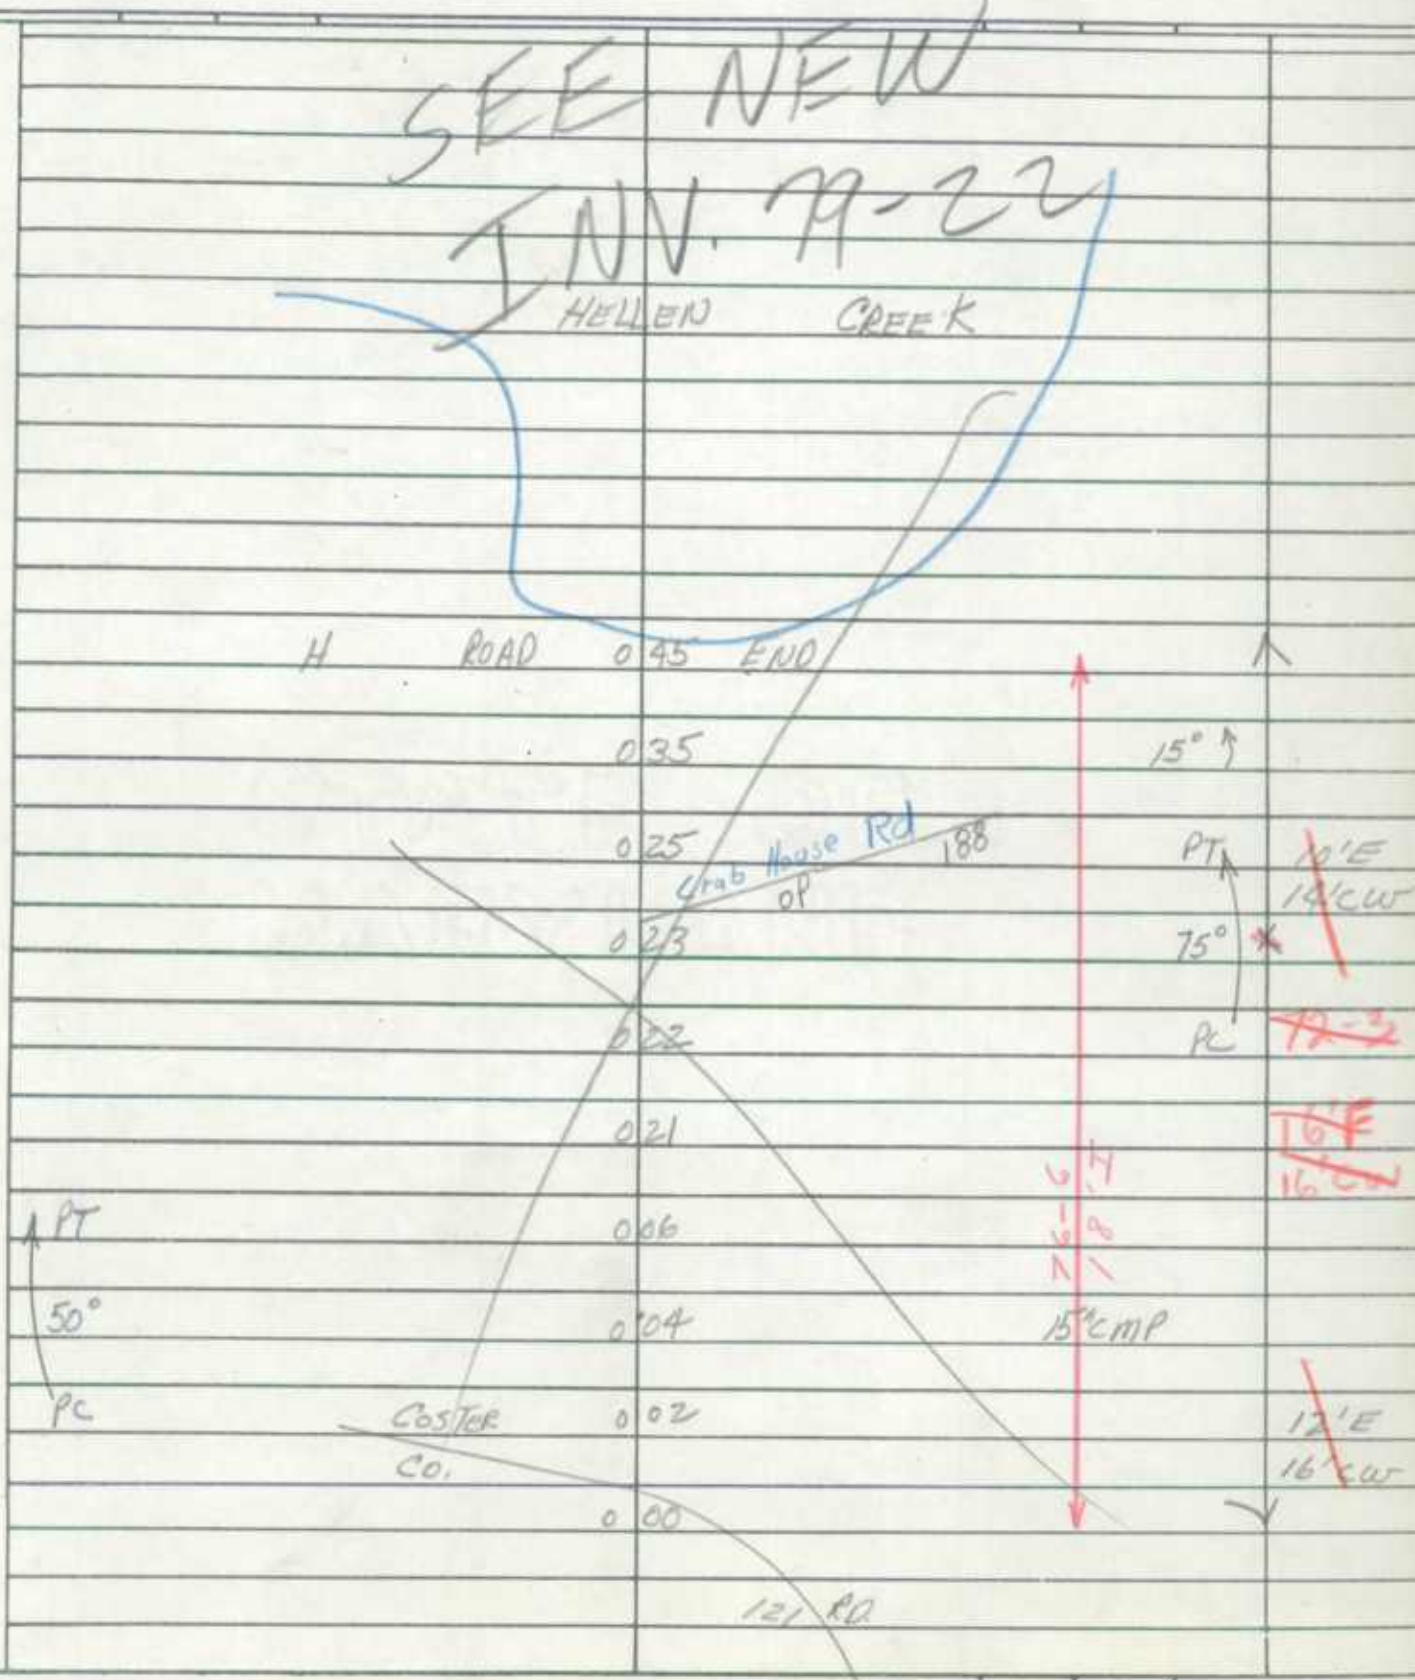 SEE NEW
INV. 79-22
HELLEN CREEK
H ROAD 0 45 END
0 35 15°
0 25 Crab House Rd 188 PT 10'E
OP 14'CW
0 23 75°
0 22 PC 72-3
0 21 16'E
16'CW
PT 0 06
50° 0 04 15"CMP
PC COSTER 0 02 12'E
CO. 16'CW
0 00
121 RD.